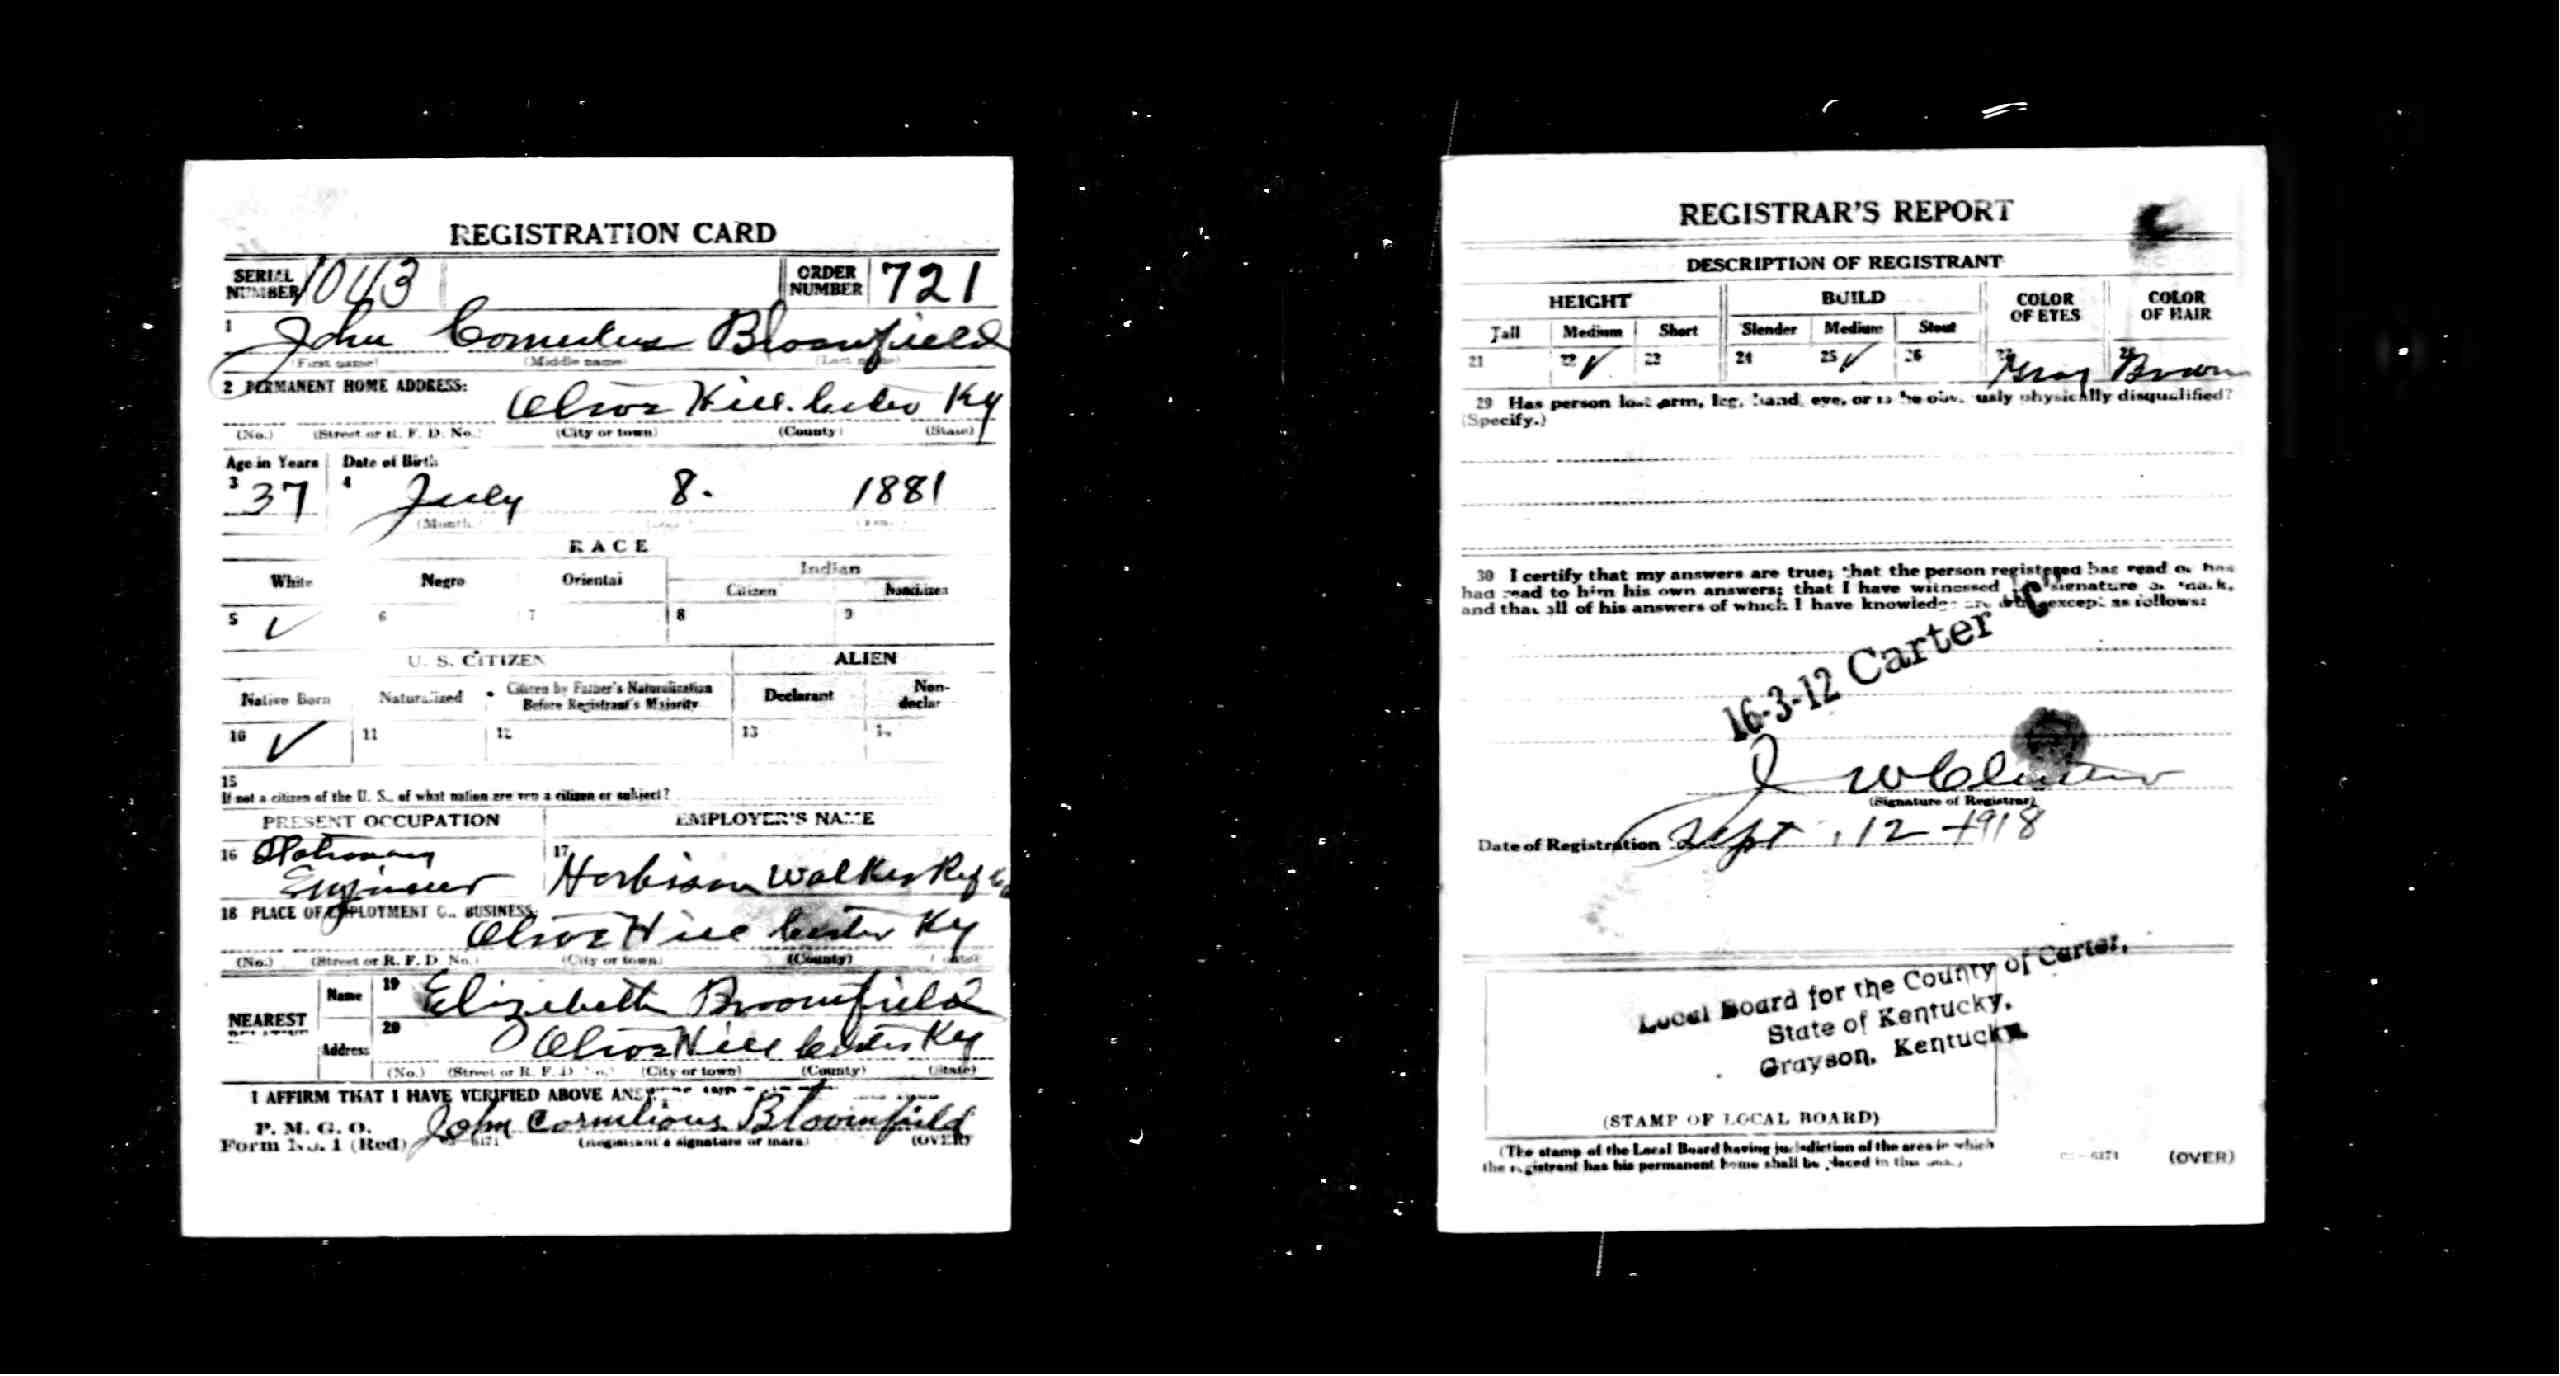 REGISTRATION CARD
SERIAL NUMBER 1043 ORDER NUMBER 721
1 John Cornelius Bloomfield
(First name) (Middle name) (Last name)
2 PERMANENT HOME ADDRESS:
Olive Hill. Carter Ky
(No.) (Street or R. F. D. No.) (City or town) (County) (State)
Age in Years Date of Birth
3 37 4 July 8. 1881
(Month)
RACE
White Negro Oriental Indian
Citizen Noncitizen
5 ✓ 6 7 8 9
U. S. CITIZEN ALIEN
Native Born Naturalized Citizen by Father's Naturalization Before Registrant's Majority Declarant Non-declar
10 ✓ 11 12 13
15
If not a citizen of the U. S., of what nation are you a citizen or subject?
PRESENT OCCUPATION EMPLOYER'S NAME
16 Stationary Engineer 17 Harbison Walker Ref Co
18 PLACE OF EMPLOYMENT BUSINESS:
Olive Hill Carter Ky
(No.) (Street or R. F. D. No.) (City or town) (County)
NEAREST
Name 19 Elizabeth Broomfield
Address 20 Olive Hill Carter Ky
(No.) (Street or R. F. D. No.) (City or town) (County) (State)
I AFFIRM THAT I HAVE VERIFIED ABOVE
P. M. G. O.
Form No. 1 (Red) John Cornelious Bloomfield
(Registrant's signature or mark) (OVER)
REGISTRAR'S REPORT
DESCRIPTION OF REGISTRANT
HEIGHT BUILD COLOR OF EYES COLOR OF HAIR
Tall Medium Short Slender Medium Stout
21 22 ✓ 23 24 25 ✓ 26 27 Gray 28 Brown
29 Has person lost arm, leg, hand, eye, or is he obviously physically disqualified?
(Specify.)
30 I certify that my answers are true; that the person registered has read or has
had read to him his own answers; that I have witnessed his signature or mark,
and that all of his answers of which I have knowledge are true, except as follows:
16-3-12 Carter C
J W
(Signature of Registrar)
Date of Registration Sept. 12 - 1918
Local Board for the County of Carter,
State of Kentucky,
Grayson, Kentucky.
(STAMP OF LOCAL BOARD)
(The stamp of the Local Board having jurisdiction of the area in which
the registrant has his permanent home shall be placed in this box.)
(OVER)